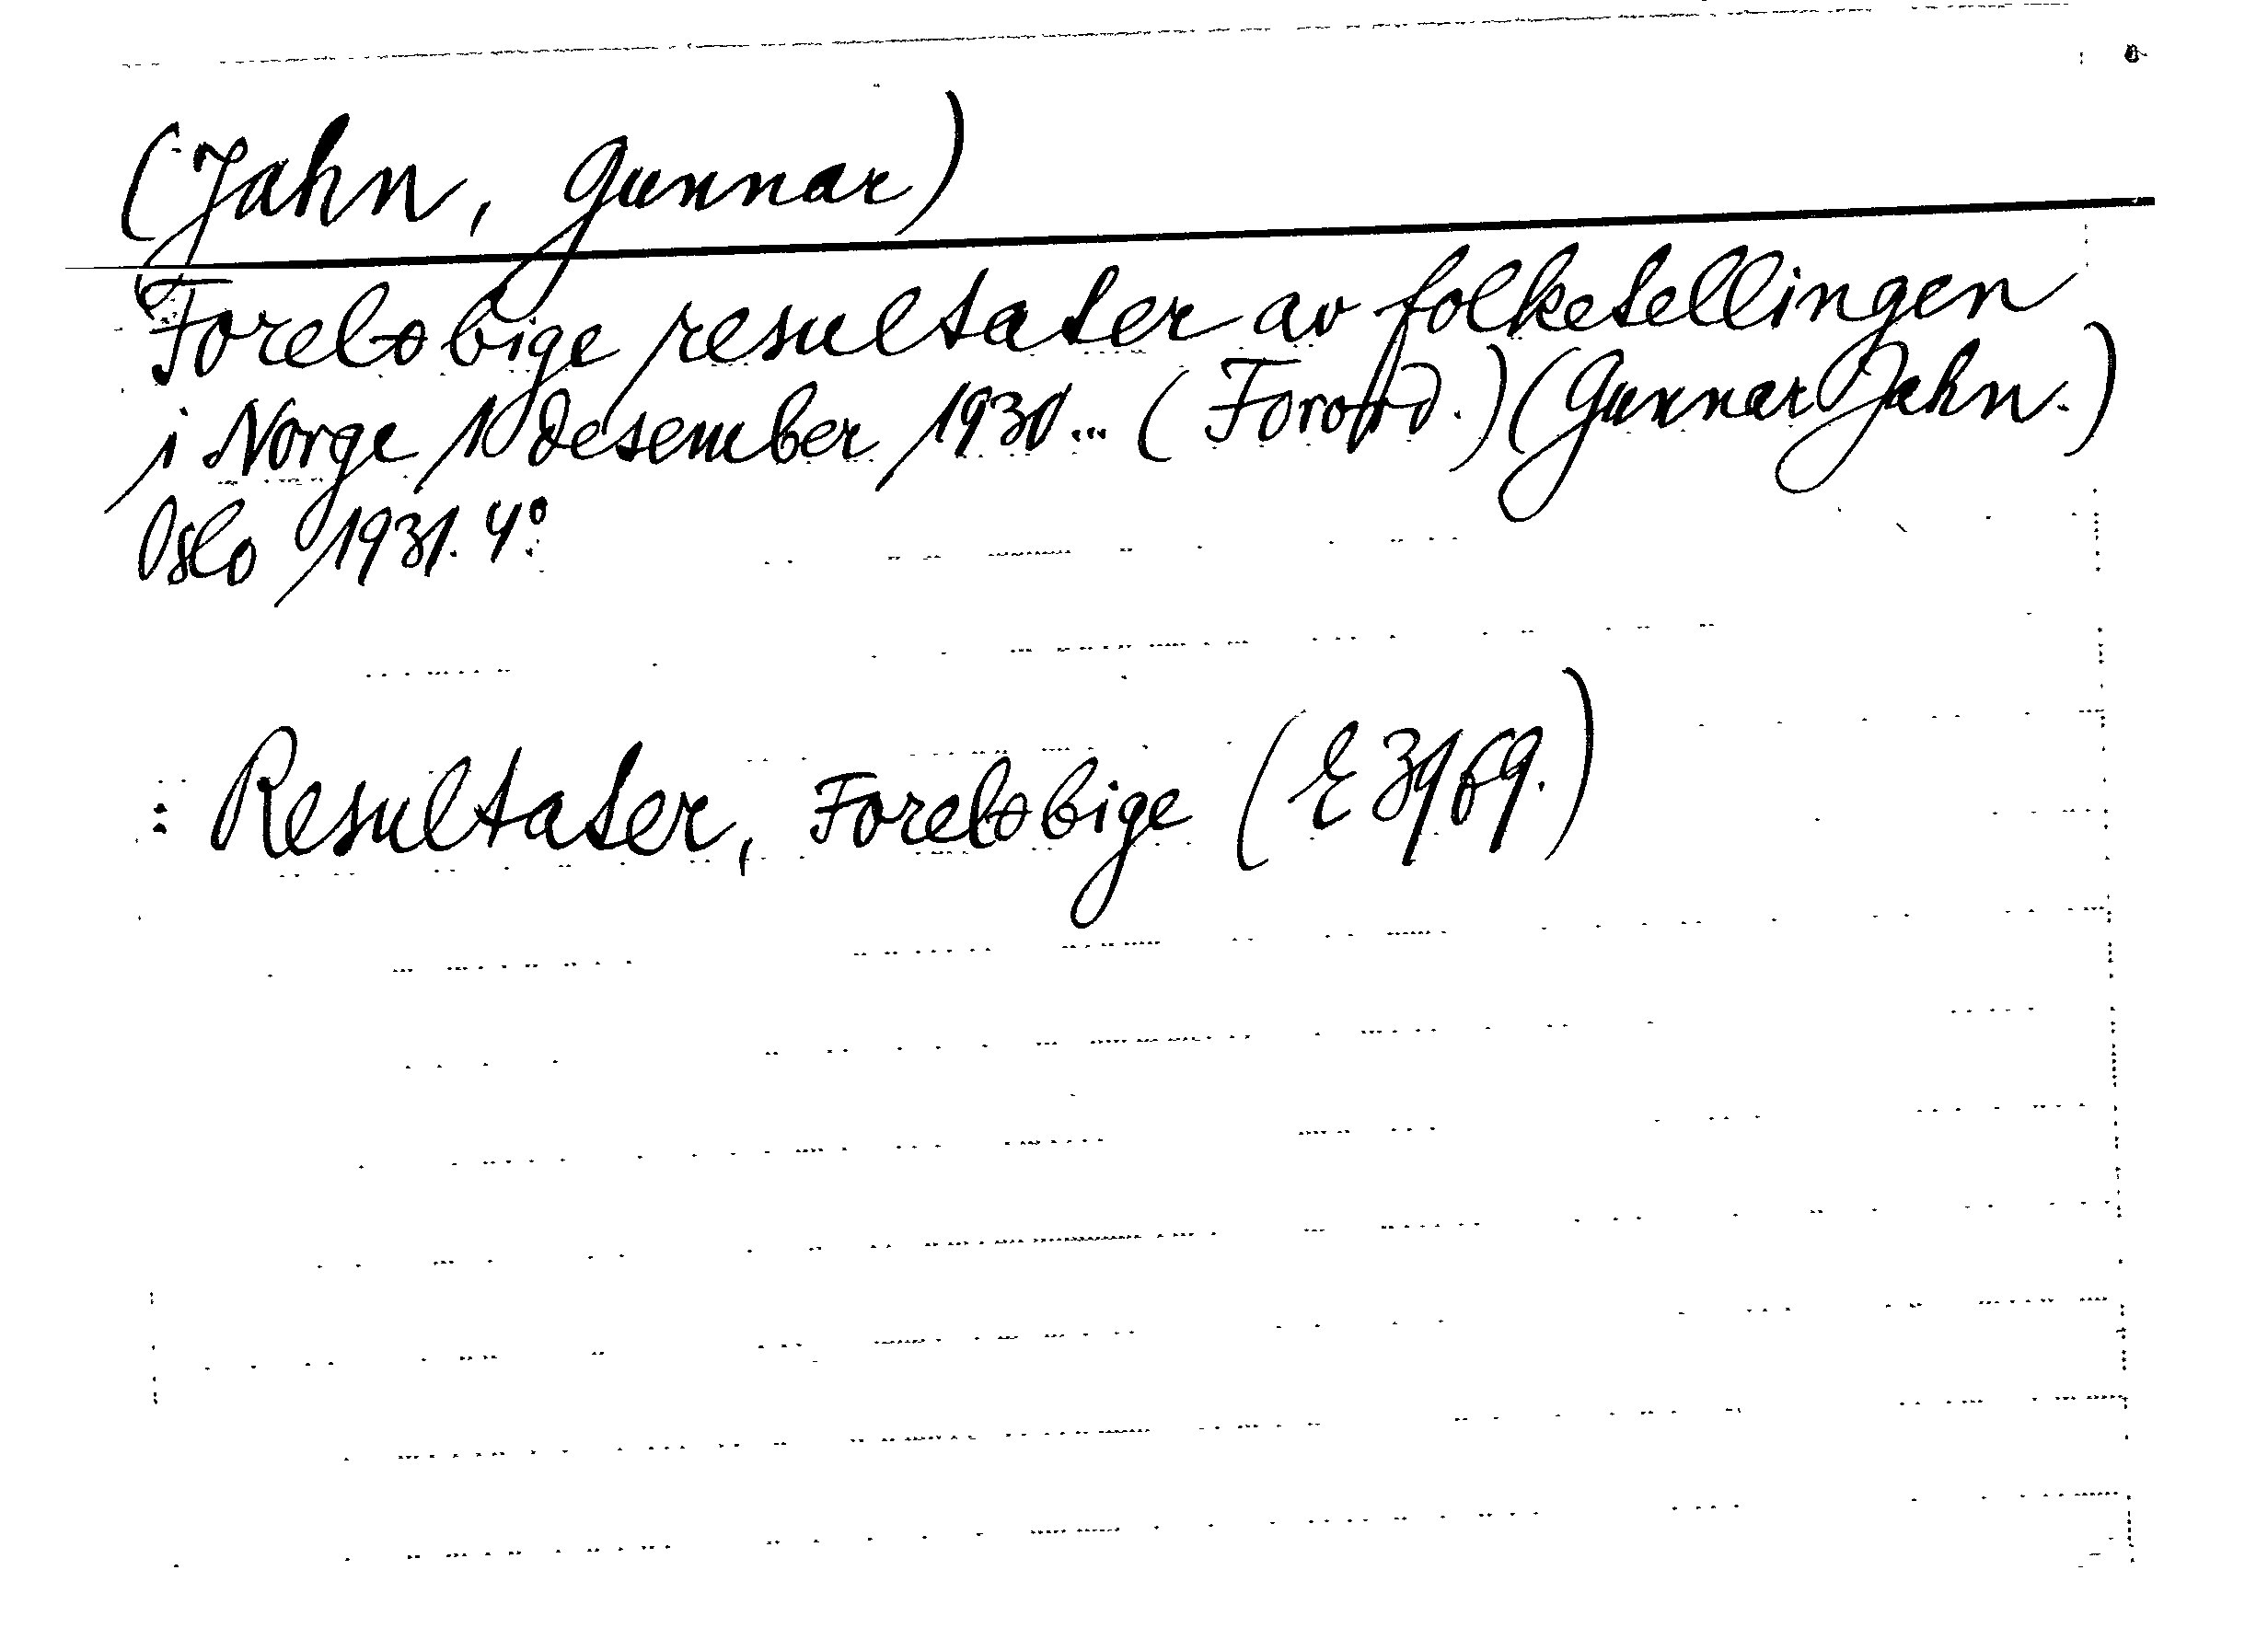 (Jahn, Gunnar)
Foreløbige resultater av folketellingen
i Norge 1 desember 1930... (Forord.) (Gunnar Jahn.)
Oslo 1931. 4°.
: Resultater, Foreløbige (E 3969.)